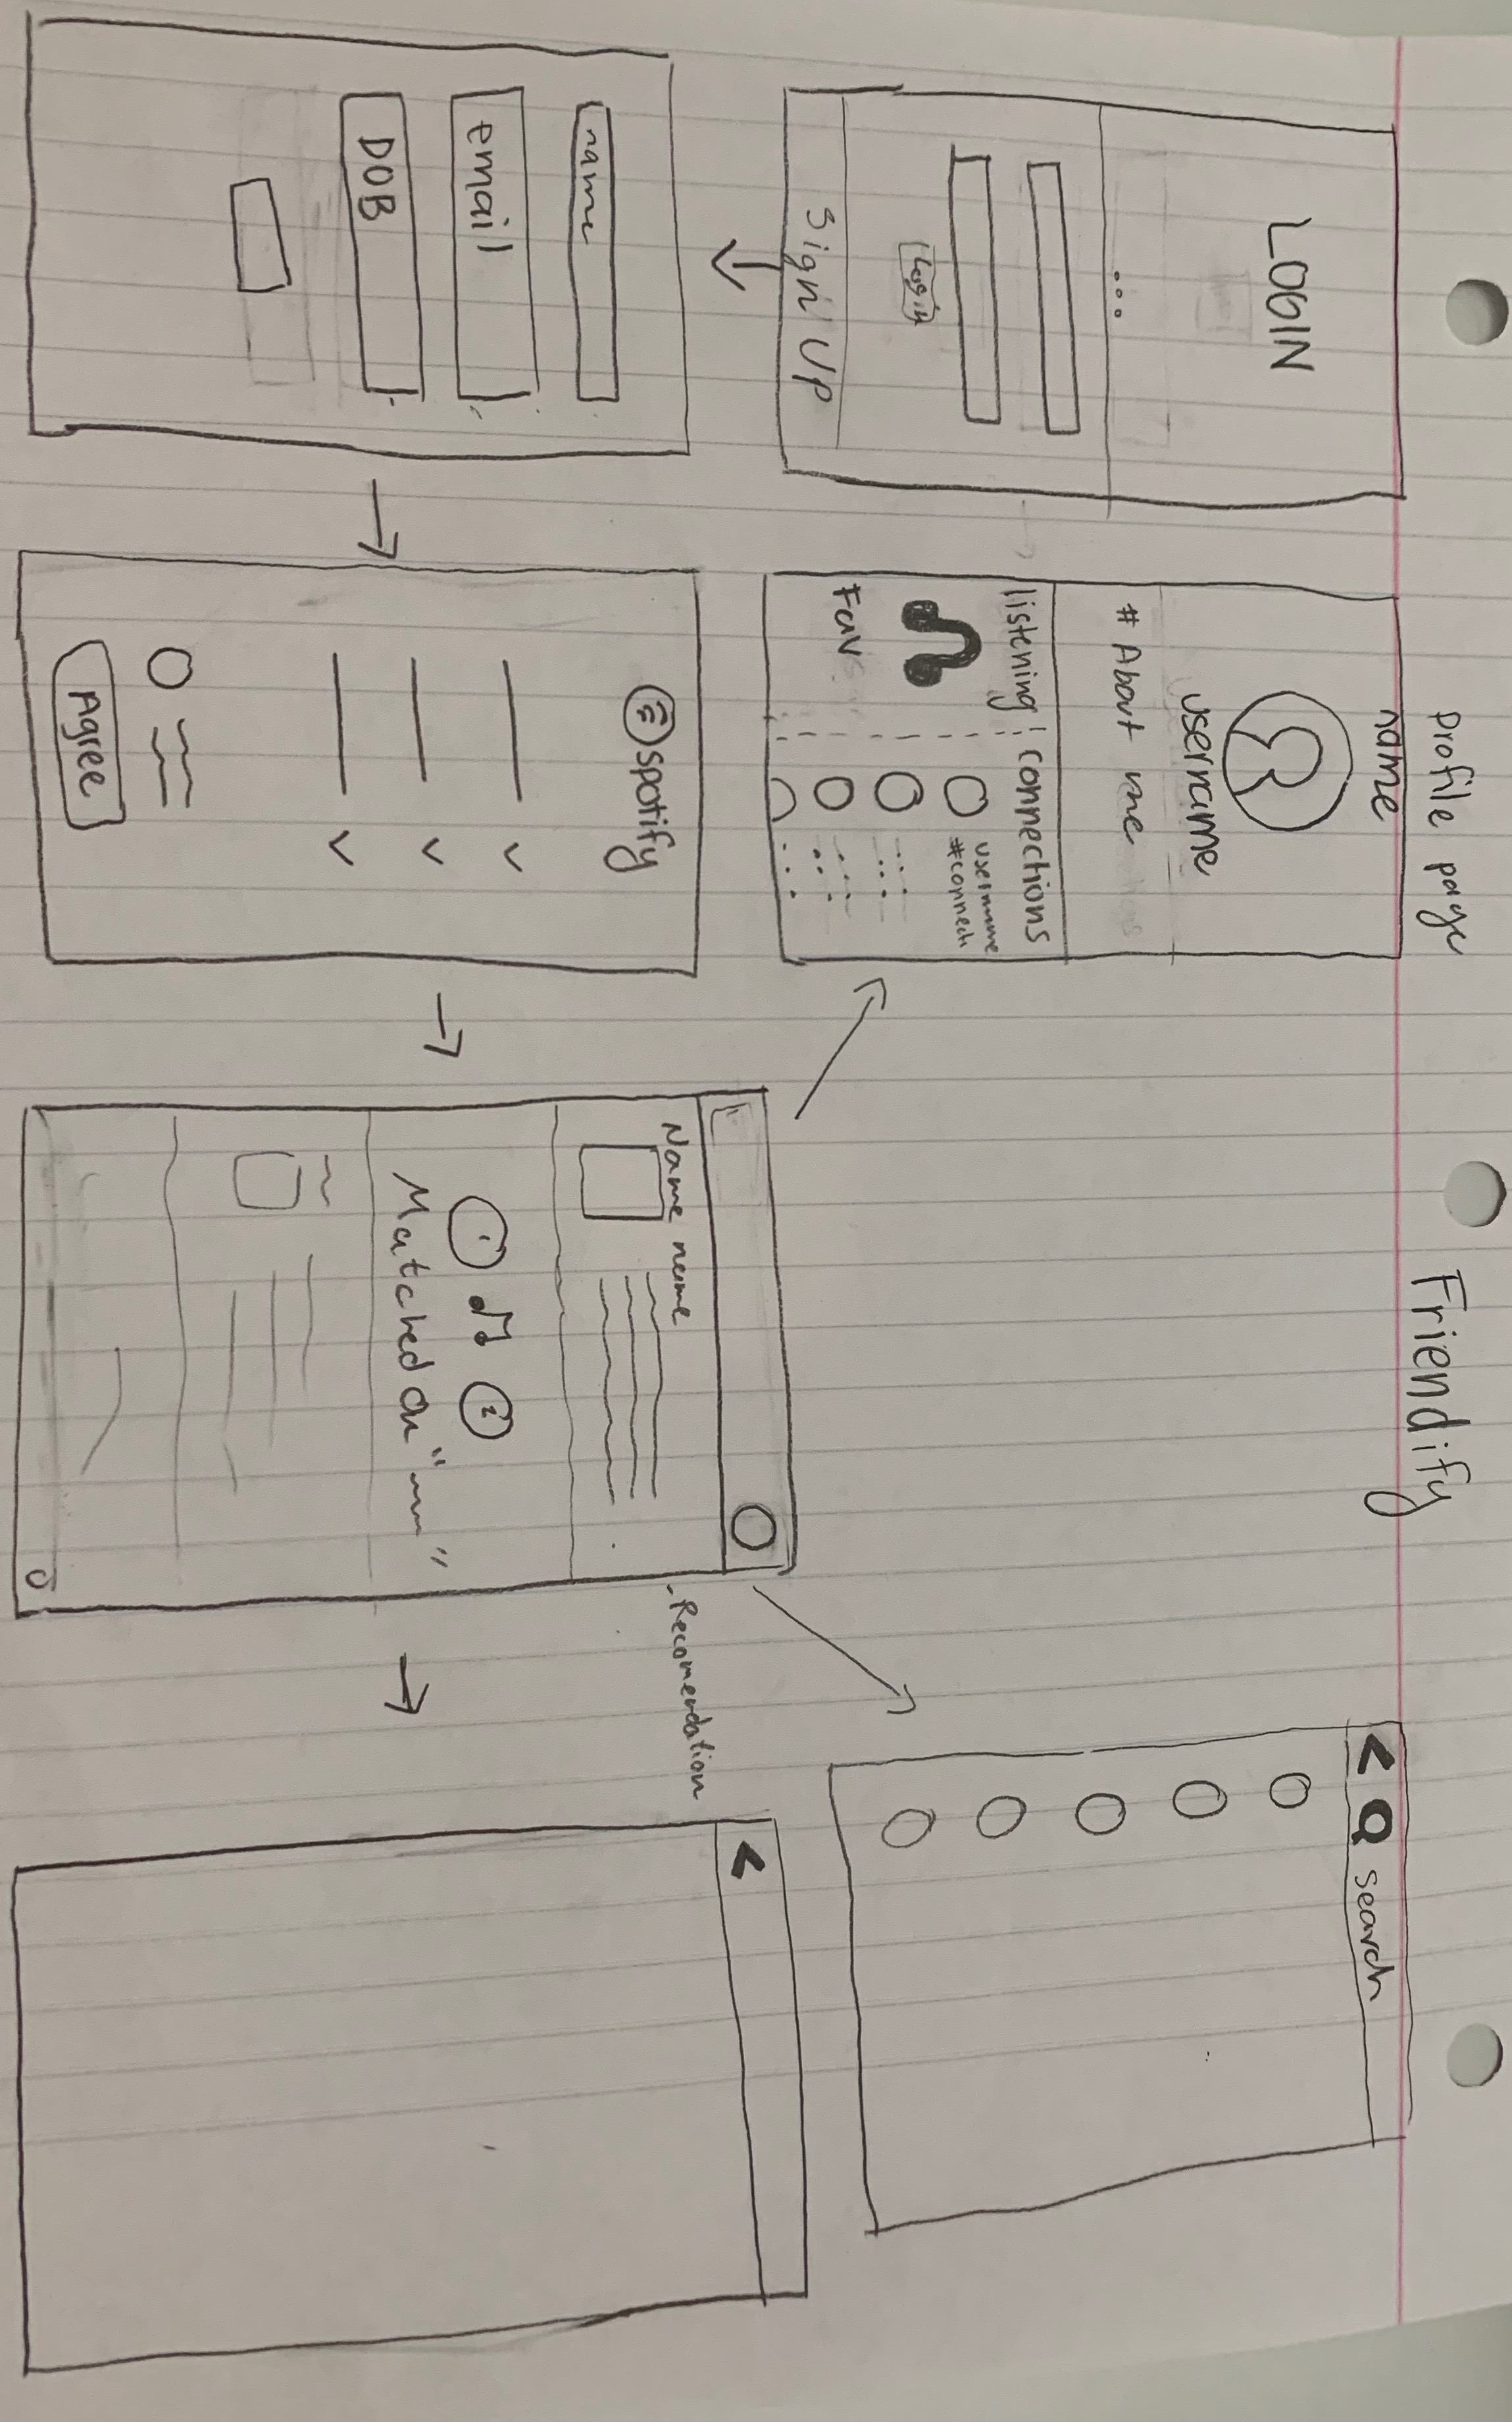 Friendify
LOGIN
...
Login
Sign UP
name
email
DOB
Profile page
name
username
# About me
listening
connections
username
#connect
Fav
spotify
Agree
Name name
1
2
Matched on "
"
- Recomendation
< search
<